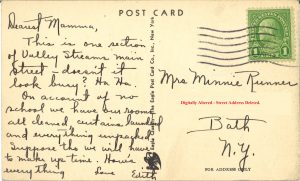 POST CARD
Dearest Mamma,
This is one section
of Valley Streams main
Street & doesn't it
look busy? Ha Ha.
On account of no
school we have our room
all cleaned, curtains laundered
and everything unpacked.
Suppose tho we will have
to make up time. How's
everything Love Edith
1
1
Mrs Minnie Runner
Digitally Altered - Street Address Deleted.
Bath
N.Y.
FOR ADDRESS ONLY
Eagle Post Card Co., Inc. New York